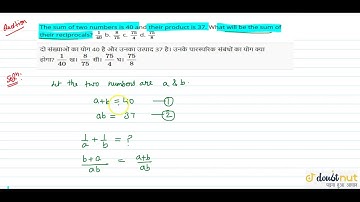 Question
The sum of two numbers is 40 and their product is 37. What will be the sum of
their reciprocals? a. 1/40 b. 8/75 c. 75/4 d. 75/8
दो संख्याओं का योग 40 है और उनका उत्पाद 37 है। उनके पारस्परिक संबंधों का योग क्या
होगा? 1/40 ख। 8/75 सी। 75/4 घ। 75/8
Let the two numbers are a & b.
a+b = 40 —①
ab = 37 —②
1/a + 1/b = ?
(b+a)/ab = (a+b)/ab
doubtnut